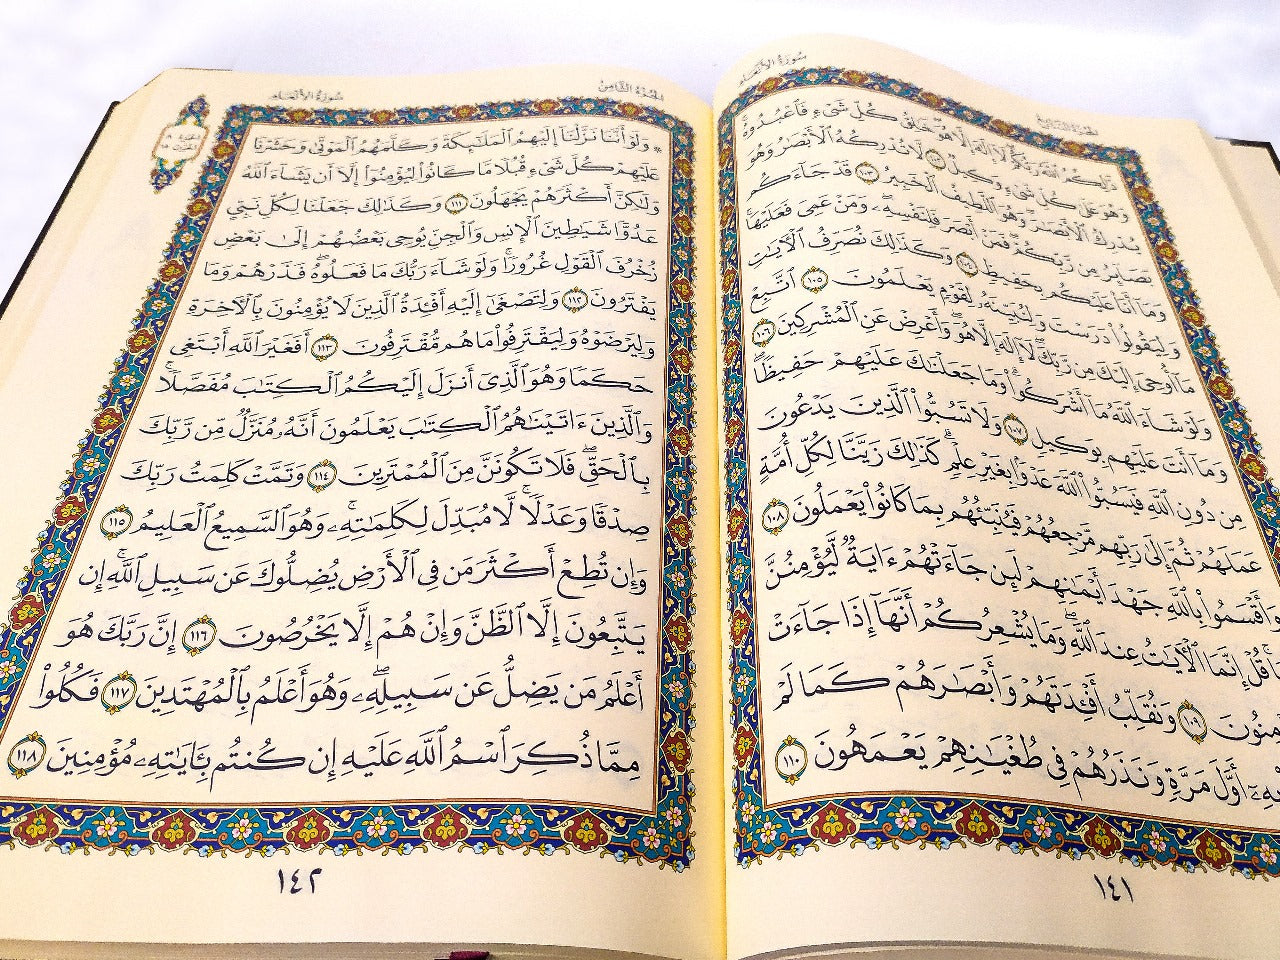 سُورَةُ الأَنْعَامِ
ذَٰلِكُمُ ٱللَّهُ رَبُّكُمْ لَآ إِلَٰهَ إِلَّا هُوَ خَٰلِقُ كُلِّ شَىْءٍ فَٱعْبُدُوهُ
وَهُوَ عَلَىٰ كُلِّ شَىْءٍ وَكِيلٌ ١٠٢ لَّا تُدْرِكُهُ ٱلْأَبْصَٰرُ وَهُوَ
يُدْرِكُ ٱلْأَبْصَٰرَ وَهُوَ ٱللَّطِيفُ ٱلْخَبِيرُ ١٠٣ قَدْ جَآءَكُم
بَصَآئِرُ مِن رَّبِّكُمْ فَمَنْ أَبْصَرَ فَلِنَفْسِهِۦ وَمَنْ عَمِىَ فَعَلَيْهَا
وَمَآ أَنَا۠ عَلَيْكُم بِحَفِيظٍ ١٠٤ وَكَذَٰلِكَ نُصَرِّفُ ٱلْأَيَٰتِ
وَلِيَقُولُوا۟ دَرَسْتَ وَلِنُبَيِّنَهُۥ لِقَوْمٍ يَعْلَمُونَ ١٠٥ ٱتَّبِعْ
مَآ أُوحِىَ إِلَيْكَ مِن رَّبِّكَ لَآ إِلَٰهَ إِلَّا هُوَ وَأَعْرِضْ عَنِ ٱلْمُشْرِكِينَ ١٠٦
وَلَوْ شَآءَ ٱللَّهُ مَآ أَشْرَكُوا۟ وَمَا جَعَلْنَٰكَ عَلَيْهِمْ حَفِيظًا
وَمَآ أَنتَ عَلَيْهِم بِوَكِيلٍ ١٠٧ وَلَا تَسُبُّوا۟ ٱلَّذِينَ يَدْعُونَ
مِن دُونِ ٱللَّهِ فَيَسُبُّوا۟ ٱللَّهَ عَدْوًۢا بِغَيْرِ عِلْمٍ كَذَٰلِكَ زَيَّنَّا لِكُلِّ أُمَّةٍ
عَمَلَهُمْ ثُمَّ إِلَىٰ رَبِّهِم مَّرْجِعُهُمْ فَيُنَبِّئُهُم بِمَا كَانُوا۟ يَعْمَلُونَ ١٠٨
وَأَقْسَمُوا۟ بِٱللَّهِ جَهْدَ أَيْمَٰنِهِمْ لَئِن جَآءَتْهُمْ ءَايَةٌ لَّيُؤْمِنُنَّ
قُلْ إِنَّمَا ٱلْأَيَٰتُ عِندَ ٱللَّهِ وَمَا يُشْعِرُكُمْ أَنَّهَآ إِذَا جَآءَتْ
١٠٩ وَنُقَلِّبُ أَفْـِٔدَتَهُمْ وَأَبْصَٰرَهُمْ كَمَا لَمْ
أَوَّلَ مَرَّةٍ وَنَذَرُهُمْ فِى طُغْيَٰنِهِمْ يَعْمَهُونَ ١١٠
١٤١
الجُزْءُ الثَّامِنُ سُورَةُ الأَنْعَامِ
۞ وَلَوْ أَنَّنَا نَزَّلْنَآ إِلَيْهِمُ ٱلْمَلَٰٓئِكَةَ وَكَلَّمَهُمُ ٱلْمَوْتَىٰ وَحَشَرْنَا
عَلَيْهِمْ كُلَّ شَىْءٍ قُبُلًا مَّا كَانُوا۟ لِيُؤْمِنُوٓا۟ إِلَّآ أَن يَشَآءَ ٱللَّهُ
وَلَٰكِنَّ أَكْثَرَهُمْ يَجْهَلُونَ ١١١ وَكَذَٰلِكَ جَعَلْنَا لِكُلِّ نَبِىٍّ
عَدُوًّا شَيَٰطِينَ ٱلْإِنسِ وَٱلْجِنِّ يُوحِى بَعْضُهُمْ إِلَىٰ بَعْضٍ
زُخْرُفَ ٱلْقَوْلِ غُرُورًا وَلَوْ شَآءَ رَبُّكَ مَا فَعَلُوهُ فَذَرْهُمْ وَمَا
يَفْتَرُونَ ١١٢ وَلِتَصْغَىٰٓ إِلَيْهِ أَفْـِٔدَةُ ٱلَّذِينَ لَا يُؤْمِنُونَ بِٱلْأَخِرَةِ
وَلِيَرْضَوْهُ وَلِيَقْتَرِفُوا۟ مَا هُم مُّقْتَرِفُونَ ١١٣ أَفَغَيْرَ ٱللَّهِ أَبْتَغِى
حَكَمًا وَهُوَ ٱلَّذِىٓ أَنزَلَ إِلَيْكُمُ ٱلْكِتَٰبَ مُفَصَّلًا
وَٱلَّذِينَ ءَاتَيْنَٰهُمُ ٱلْكِتَٰبَ يَعْلَمُونَ أَنَّهُۥ مُنَزَّلٌ مِّن رَّبِّكَ
بِٱلْحَقِّ فَلَا تَكُونَنَّ مِنَ ٱلْمُمْتَرِينَ ١١٤ وَتَمَّتْ كَلِمَتُ رَبِّكَ
صِدْقًا وَعَدْلًا لَّا مُبَدِّلَ لِكَلِمَٰتِهِۦ وَهُوَ ٱلسَّمِيعُ ٱلْعَلِيمُ ١١٥
وَإِن تُطِعْ أَكْثَرَ مَن فِى ٱلْأَرْضِ يُضِلُّوكَ عَن سَبِيلِ ٱللَّهِ إِن
يَتَّبِعُونَ إِلَّا ٱلظَّنَّ وَإِنْ هُمْ إِلَّا يَخْرُصُونَ ١١٦ إِنَّ رَبَّكَ هُوَ
أَعْلَمُ مَن يَضِلُّ عَن سَبِيلِهِۦ وَهُوَ أَعْلَمُ بِٱلْمُهْتَدِينَ ١١٧ فَكُلُوا۟
مِمَّا ذُكِرَ ٱسْمُ ٱللَّهِ عَلَيْهِ إِن كُنتُم بِـَٔايَٰتِهِۦ مُؤْمِنِينَ ١١٨
١٤٢